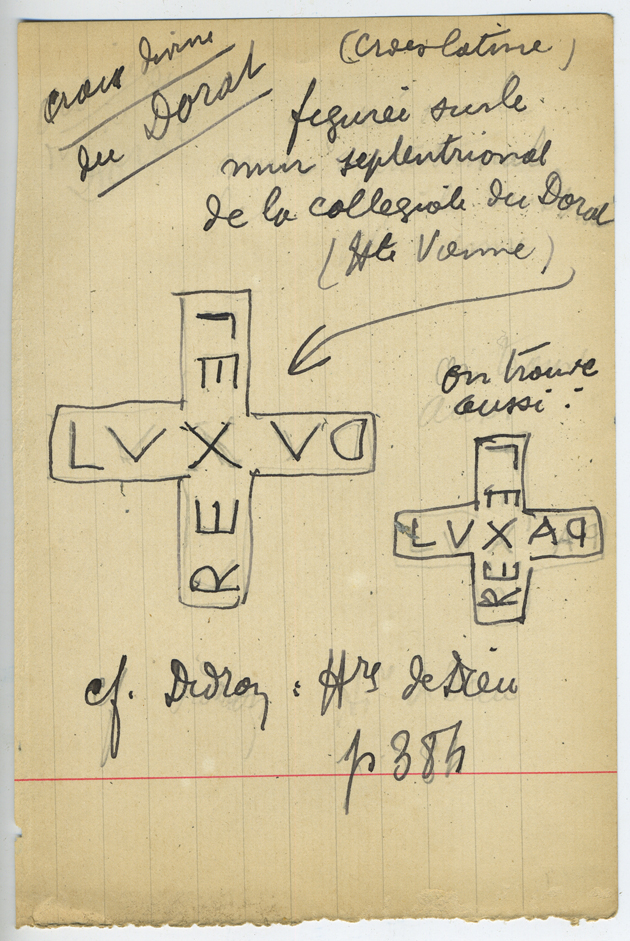 croix divine
du Dorat
(croix latine)
figurée sur le
mur septentrional
de la collegiale du Dorat
(Hte Vienne)
L
E
LVXVD
E
R
on trouve
aussi :
L
E
LVXAP
E
R
cf. Didron : Hre de Dieu
p 384